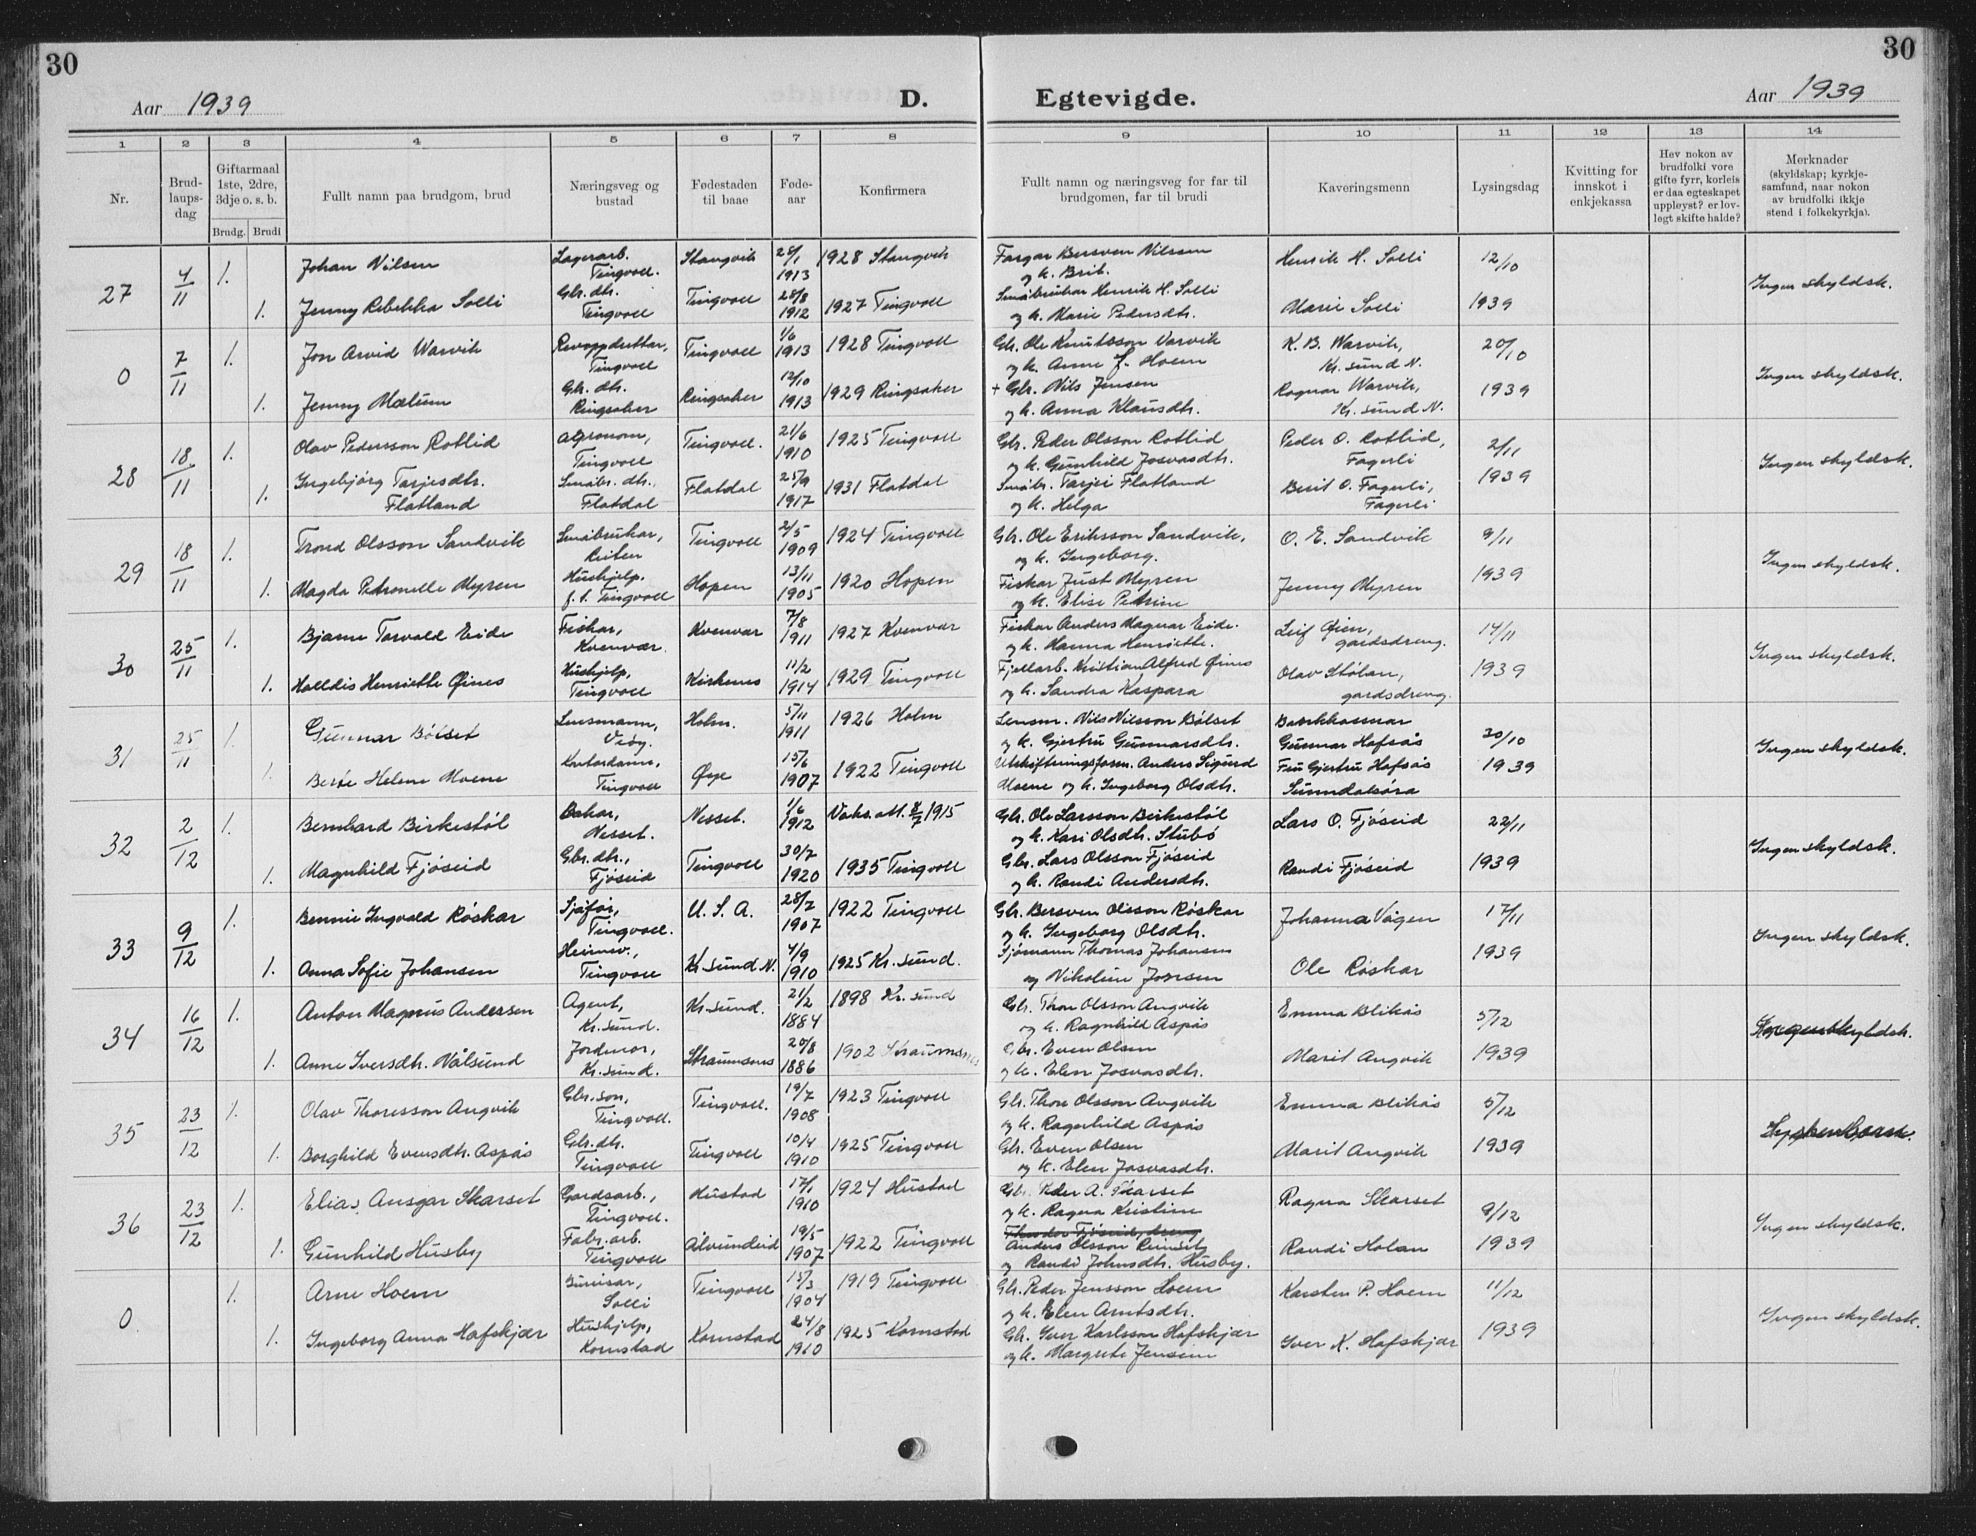 30
30
Aar 1939
D.
Egtevigde.
Aar 1939
1 2 3 4 5 6 7 8 9 10 11 12 13 14
Nr.
Brud-
laups-
dag
Giftarmaal
1ste, 2dre,
3dje o. s. b.
Brudg. Brudi
Fullt namn paa brudgom, brud
Næringsveg og
bustad
Fødestaden
til baae
Føde-
aar
Konfirmera
Fullt namn og næringsveg for far til
brudgomen, far til brudi
Kaveringsmenn
Lysingsdag
Kvitting for
innskot i
enkjekassa
Hev nokon av
brudfolki vore
gifte fyrr, korleis
er daa egteskapet
uppløyst? er lov-
legt skifte halde?
Merknader
(skyldskap; kyrkje-
samfund, naar nokon
av brudfolki ikkje
stend i folkekyrkja).
27 4/11 1. Johan Nilsen Lagerarb. Tingvoll. Stangvik 28/1 1913 1928 Stangvik Bersven Nilssen og k. Brit. Henrik H. Solli 12/10
1. Jenny Rebekka Solli Gbr. dtr. Tingvoll Tingvoll 28/8 1912 1927 Tingvoll Småbrukar Henrik H. Solli og k. Marie Pedersdtr. Marie Solli 1939 Ingen skyldsk.
0 7/11 1. Jon Arvid Warvik Tingvoll Tingvoll 1/6 1913 1928 Tingvoll Gbr. Ole Knutsson Varvik og k. Anne J. Hoem K. B. Warvik, Kr. sund N. 20/10
1. Jenny Mælum Gbr. dtr. Ringsaker Ringsaker 12/10 1913 1929 Ringsaker + Gbr. Nils Jensen og k. Anna Klausdtr. Ragnar Warvik, Kr. sund N. 1939 Ingen skyldsk.
28 18/11 1. Olav Pedersson Rotlid Agronom, Tingvoll Tingvoll. 21/6 1910 1925 Tingvoll Gbr. Peder Olsson Rotlid og k. Gunhild Josvasdtr. Peder O. Rotlid, Fagerli 2/11
1. Ingebjørg Tarjesdtr. Flatland Småbr. dtr., Flatdal Flatdal 25/9 1917 1931 Flatdal Småbr. Tarjei Flatland og k. Helga Berit O. Fagerli, Fagerli 1939 Ingen skyldsk.
29 18/11 1. Trond Olsson Sandvik Småbrukar, Tingvoll 2/5 1909 1924 Tingvoll Gbr. Ole Eriksson Sandvik, og k. Ingeborg. O. E. Sandvik 9/11
1. Magda Petronelle Myren Hushjelp, f. t. Tingvoll Hopen 13/11 1905 1920 Hopen Fiskar Just Myren og k. Elise Petrine Jenny Myren 1939 Ingen skyldsk.
30 25/11 1. Bjarne Torvald Eide Fiskar, Kvenvær. Kvenvær 7/8 1911 1927 Kvenvær Fiskar Anders Magnar Eide. og k. Hanna Henriette. Leif Øien, gardsdreng. 14/11
1. Halldis Henriette Øines Hushjelp, Tingvoll Kirkenes 11/2 1914 1929 Tingvoll Fjellarb. Kristian Alfred Øines og k. Sandra Kaspara Olav Stølan, gardsdreng. 1939 Ingen skyldsk.
31 25/11 1. Gunnar Bølset Lensmann, Veøy. Holm. 5/11 1911 1926 Holm Lensm. Nils Nilsson Bølset og k. Gjertru Gunnarsdtr. Bankkasserar Gunnar Hafsås 30/10
1. Helene Moene Kontordame, Tingvoll Øye 15/6 1907 1922 Tingvoll Utskiftningsform. Anders Sigurd Moene og k. Ingeborg Olsdtr. Fru Gjertru Hafsås Sunndalsøra 1939 Ingen skyldsk.
32 2/12 1. Bernhard Birkestøl Bakar, Nesset. Nesset. 1/6 1912 Vaks. att. 1915 Gbr. Ole Larsson Birkestøl og k. Kari Olsdtr. Stubø Lars O. Fjøseid 22/11
1. Magnhild Fjøseid Gbr. dtr., Fjøseid Tingvoll 30/7 1920 1935 Tingvoll Gbr. Lars Olsson Fjøseid og k. Randi Andersdtr. Randi Fjøseid 1939 Ingen skyldsk.
33 9/12 1. Bennie Ingvald Røskar Sjåfør, Tingvoll. U. S. A. 28/7 1907 1922 Tingvoll Gbr. Bersven Olsson Røskar og k. Ingeborg Olsdtr. Johanna Vågen 17/11
1. Anna Sofie Johansen Heimev., Tingvoll Kr. sund N. 4/9 1910 1925 Kr. sund. Sjømann Thomas Johansen og Nikoline Jonsen Ole Røskar 1939 Ingen skyldsk.
34 16/12 1. Anton Magnus Andersen Agent, Kr. sund. Kr. sund. 21/2 1884 1898 Kr. sund Gbr. Thore Olsson Angvik og k. Ragnhild Aspås Emma Blikås 5/12
1. Anne Iversdtr. Vålsund Jordmor, Kr. sund. Straumsnes 20/8 1886 1902 Straumsnes Gbr. Even Olsen og k. Elen Josvasdtr. Marit Angvik 1939
35 23/12 1. Olav Thoresson Angvik Gbr. son, Tingvoll. Tingvoll. 19/7 1908 1923 Tingvoll Gbr. Thore Olsson Angvik og k. Ragnhild Aspås Emma Blikås 5/12
1. Borghild Evensdtr. Aspås Gbr. dtr. Tingvoll Tingvoll 10/4 1910 1925 Tingvoll Gbr. Even Olsen og k. Elen Josvasdtr. Marit Angvik 1939 Syskenbarn.
36 23/12 1. Elias Ansgar Skarset Gardsarb., Tingvoll. Hustad 17/1 1910 1924 Hustad Gbr. Peder A. Skarset og k. Ragna Kristine Ragna Skarset 9/12
1. Gunhild Husby Fabr. arb. Tingvoll Ålvundeid 19/5 1907 1922 Tingvoll Anders Olsson og Randi Johnsdtr. Husby. Randi Holan 1939 Ingen skyldsk.
0 1. Arne Hoem Solli Tingvoll 15/3 1904 1919 Tingvoll Gbr. Peder Jensson Hoem og k. Elen Arntsdtr. Karsten P. Hoem 11/12
1. Ingeborg Anna Hafskjær Hushjelp, Kornstad Kornstad 24/8 1910 1925 Kornstad Gbr. Iver Karlsson Hafskjær og k. Margrete Jensine Iver K. Hafskjær 1939 Ingen skyldsk.